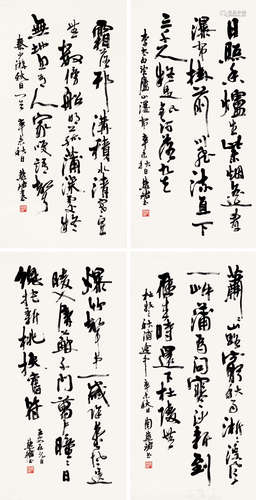 日照香爐生紫烟遥看
瀑布掛前川飛流直下
三千尺疑是銀河落九天
李太白望廬山瀑布 辛未秋日 慧珺書
霜落邗溝積水清寒星
無數傍船明菰蒲深處疑
無地忽有人家笑語聲
秦少游秋日一首 辛未秋日 慧珺書
蕭蕭山路窮秋雨淅淅溪風
一岸蒲為問寒沙新到
雁來時還下杜陵無
杜牧秋浦途中 辛未秋日 周慧珺書
爆竹聲中一歲除春風送
暖入屠蘇千門萬戶曈曈日
總把新桃換舊符
王安石元日 慧珺書